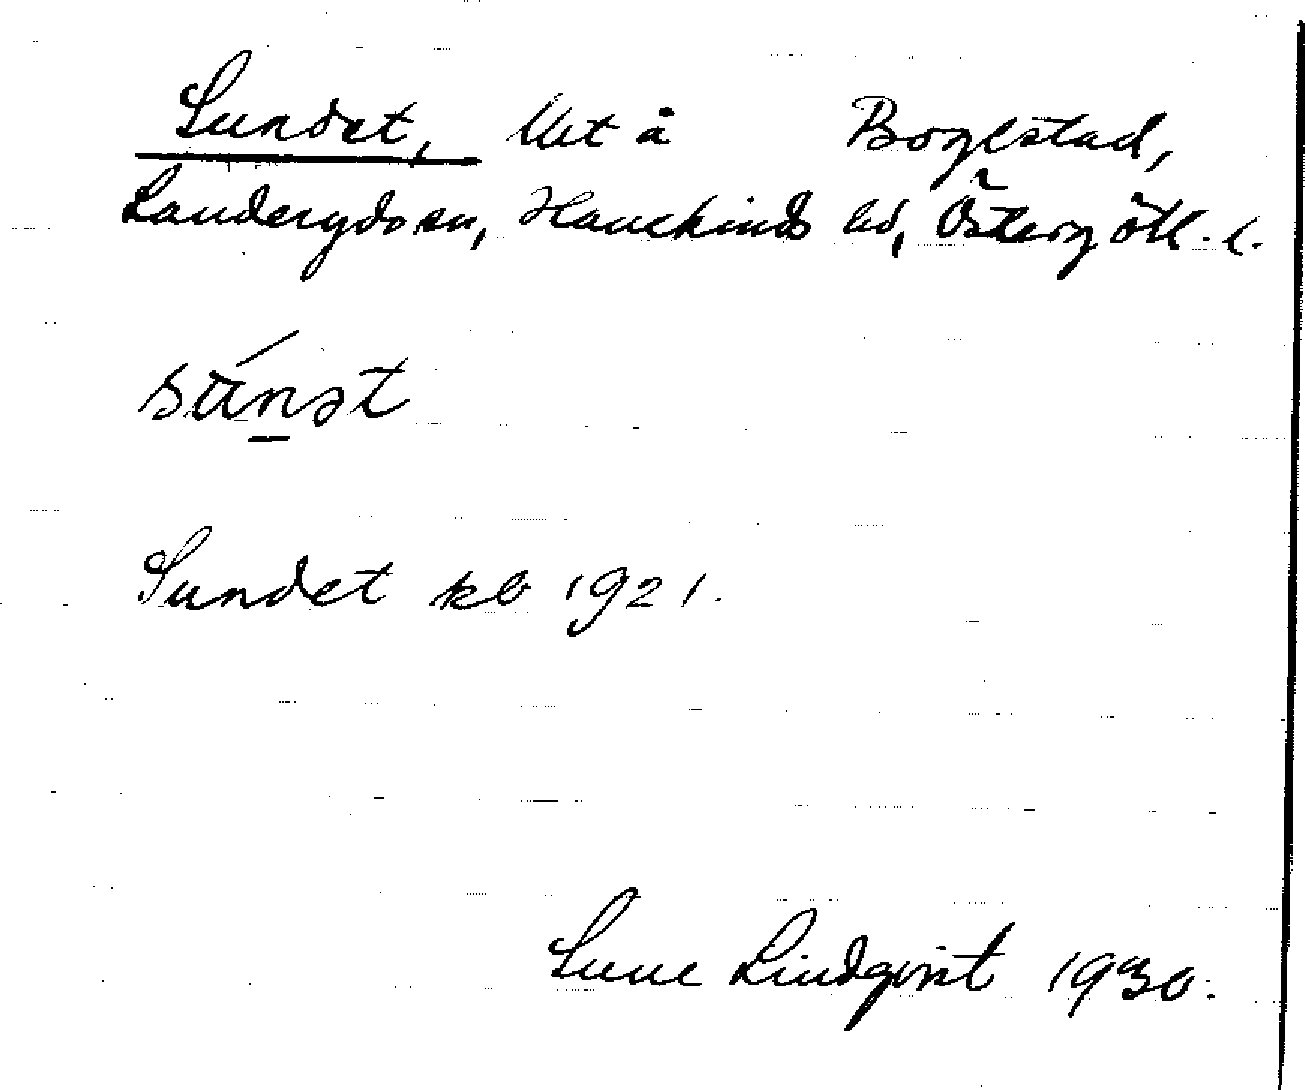 Sundet, Utt å Boglstad,
Landeryds sn, Hanekinds hd, Östergötl. l.
súnət
Sundet kb 1921.
Sune Lindqvist 1930.